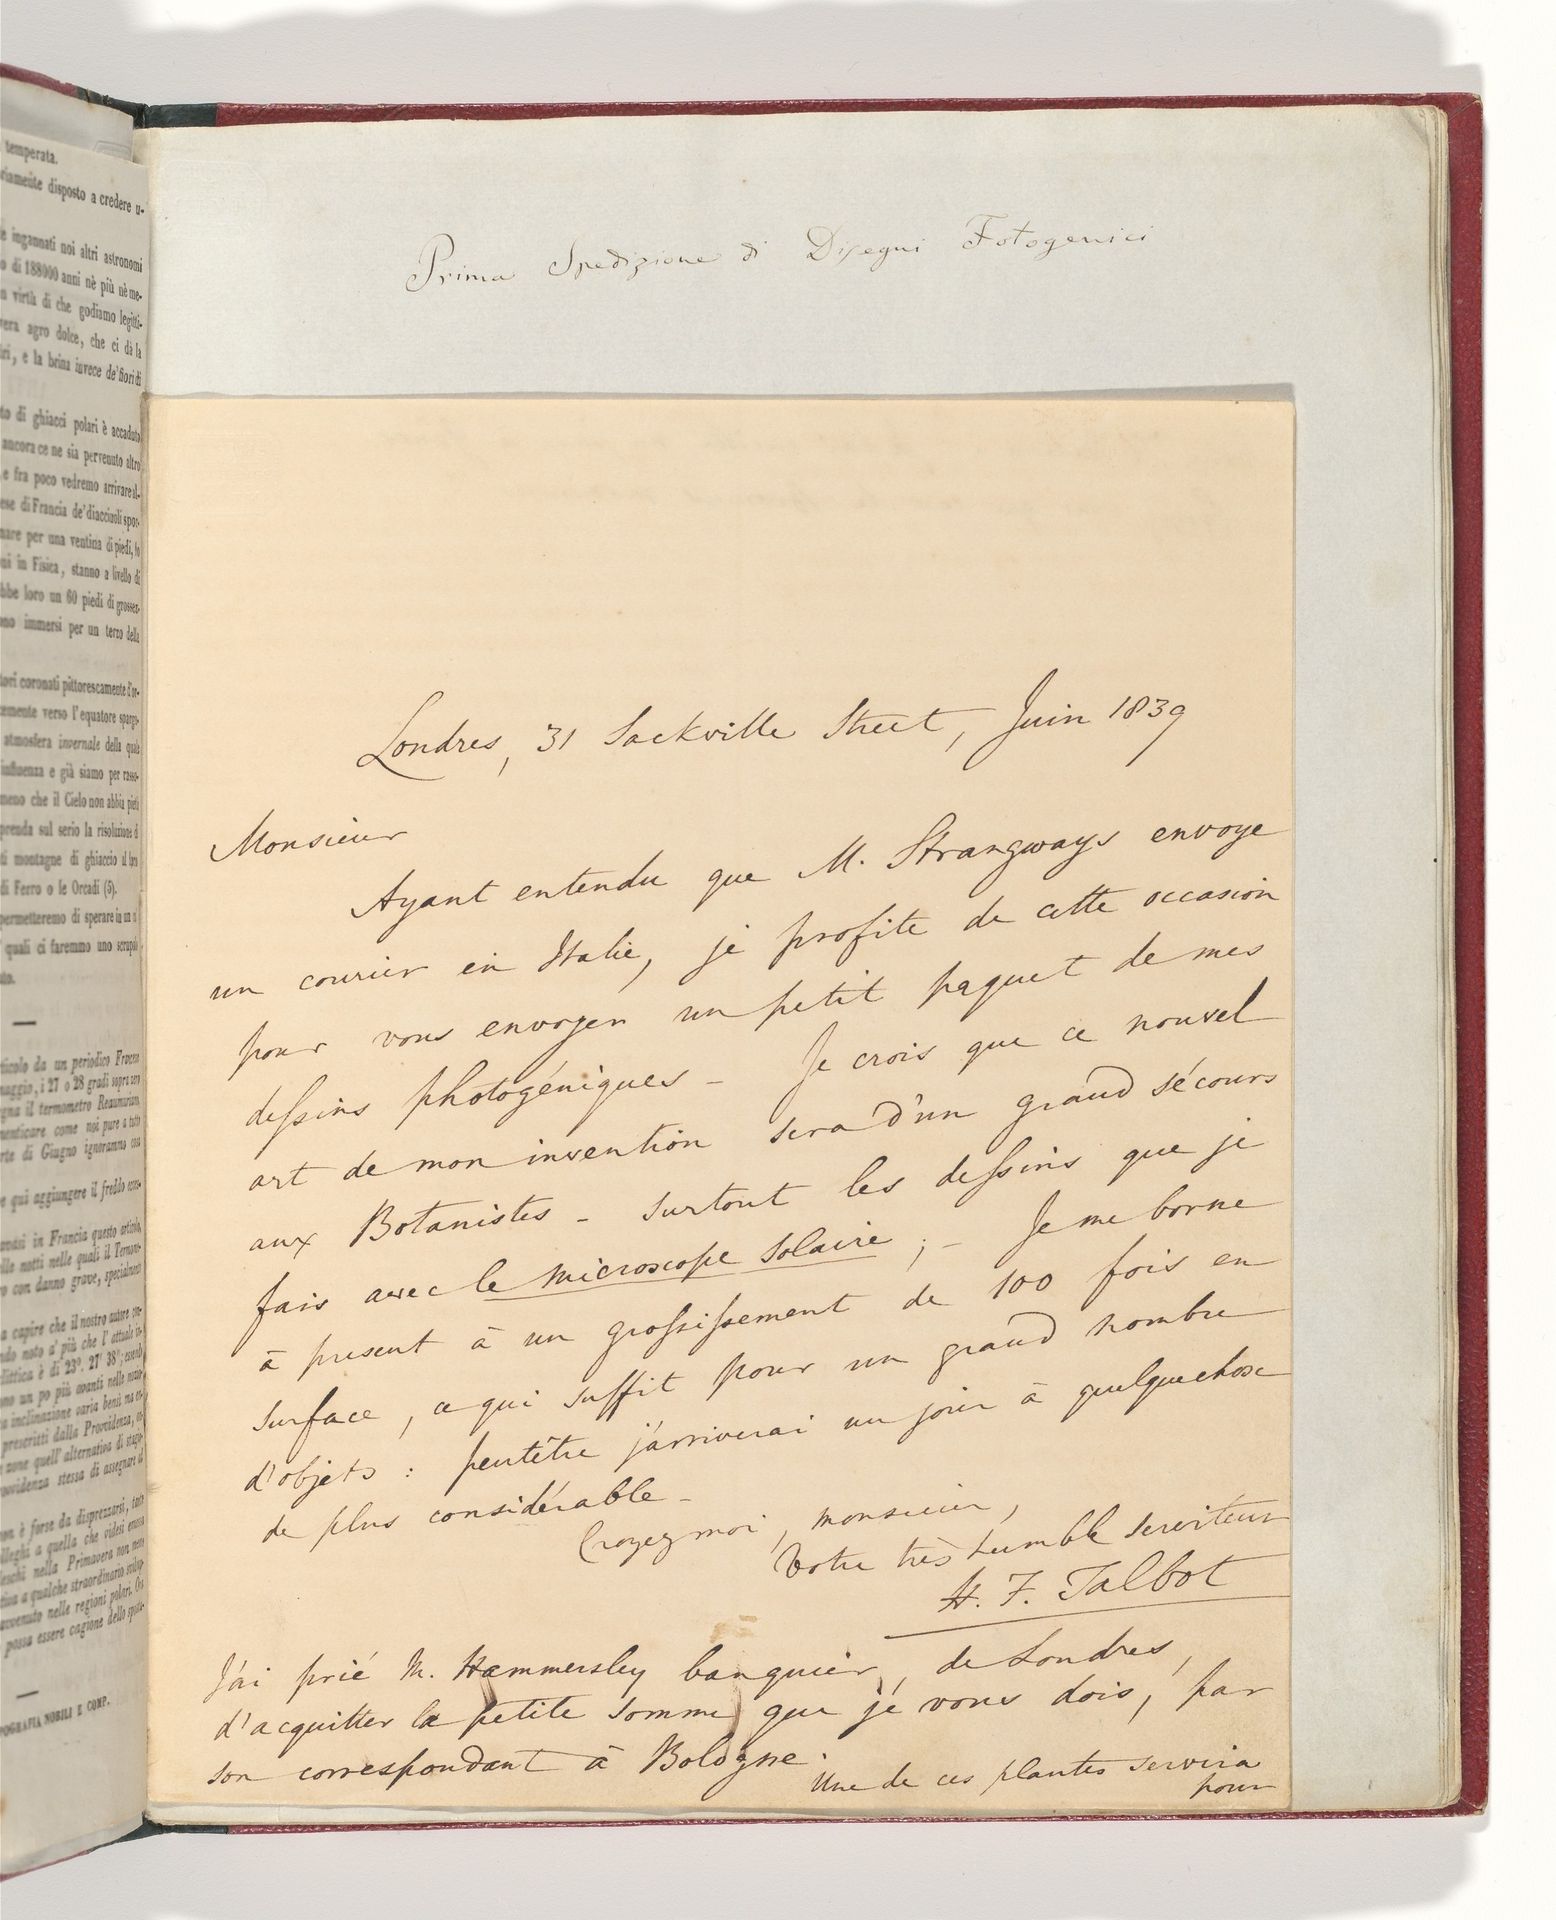 temperata.
riamente disposto a credere u-
e ingannati noi altri astronomi
o di 188000 anni nè più nè me-
n virtù di che godiamo legitti-
vera agro dolce, che ci dà la
ri, e la brina invece de' fiori di
to di ghiacci polari è accaduto
ancora ce ne sia pervenuto altro
e fra poco vedremo arrivare al-
ese di Francia de' diacciuoli spor-
mare per una ventina di piedi, lo
ni in Fisica, stanno a livello di
bbe loro un 60 piedi di grossez-
ono immersi per un terzo della
tori coronati pittorescamente d'or-
cemente verso l'equatore sparge-
atmosfera invernale della quale
influenza e già siamo per rasse-
meno che il Cielo non abbia pietà
prenda sul serio la risoluzione di
ti montagne di ghiaccio al
di Ferro o le Orcadi (5).
permetteremo di sperare in un
quali ci faremmo uno scrupolo
ato.
ticolo da un periodico Francese
maggio, i 27 o 28 gradi sopra zero
gna il termometro Reaumuriano,
menticare come noi pure a tutto
rte di Giugno ignoriamo cosa
e qui aggiungere il freddo ecces-
in Francia questo articolo,
lle notti nelle quali il Termo-
o con danno grave, specialmente
a capire che il nostro autore
ndo noto a' più che l'attuale in-
littica è di 23°. 27' 38";
ono un po più avanti nelle
a inclinazione varia bensì ma
prescritti dalla Provvidenza,
zone quell' alternativa di stagio-
ovvidenza stessa di assegnare
non è forse da disprezzarsi,
lleghi a quella che videsi emessa
eschi nella Primavera non
tiva a qualche straordinario
avvenuto nelle regioni polari.
possa essere cagione dello
POGRAFIA NOBILI E COMP.
Prima Spedizione di Disegni Fotogenici
Londres, 31 Sackville Street, Juin 1839
Monsieur
Ayant entendu que M. Strangways envoye
un courier en Italie, je profite de cette occasion
pour vous envoyer un petit paquet de mes
dessins photogéniques - Je crois que ce nouvel
art de mon invention sera d'un grand sécours
aux Botanistes - surtout les dessins que je
fais avec le microscope solaire ; - Je me borne
à present à un grossissement de 100 fois en
surface, ce qui suffit pour un grand nombre
d'objets : peutêtre j'arriverai un jour à quelquechose
de plus considérable -
Croyez moi, monsieur,
Votre très humble serviteur
H. F. Talbot
J'ai prié M. Hammersley banquier, de Londres,
d'acquitter la petite somme que je vous dois, par
son correspondant à Bologne.
Une de ces plantes servira
pour